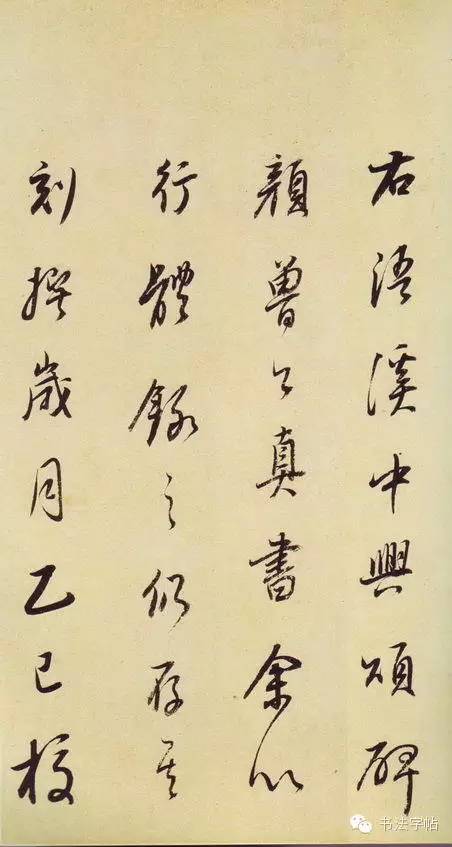 右浯溪中興頌碑
顏魯公真書余以
行體錄之仍存其
刻撰歲月乙巳校
书法字帖